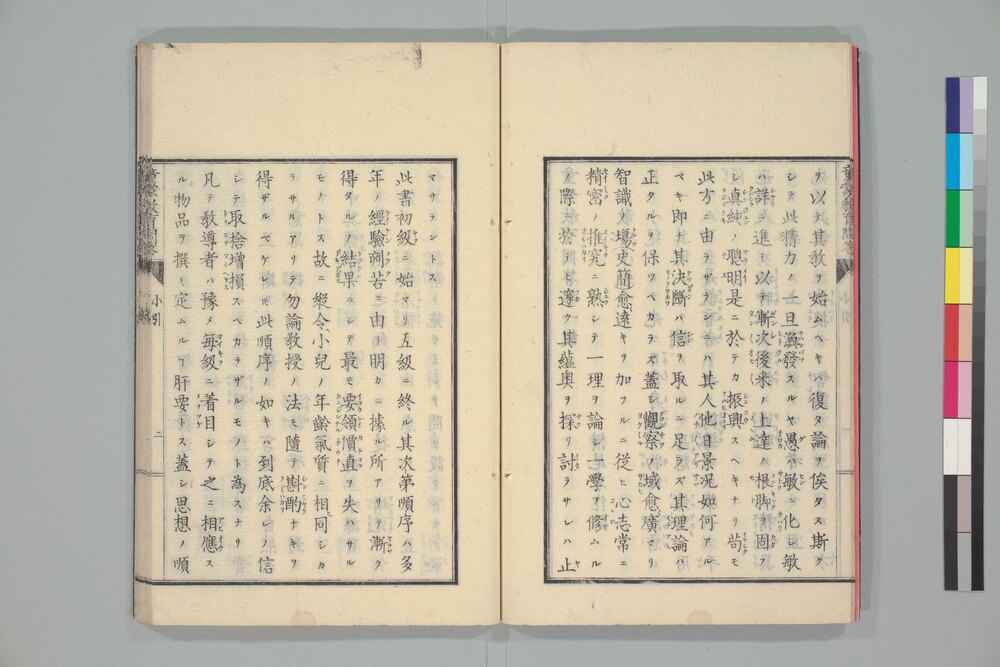 ヲ以テ其教ヲ始ムヘキハ復タ論ヲ俟タス斯ク
シテ此精力ハ一旦發スルヤ愚ハ敏ニ化シ敏
ハ詳ニ進ミ以テ漸次後来ノ上達ノ根脚ヲ固ス
シ真純ノ聰明是ニ於テカ振興スヘキナリ苟モ
此方ニ由ラザランニハ其人他日景况如何アル
ベキ即チ其決斷ハ信ヲ取ルニ足ラズ其理論ハ
正タルヲ保ツベカラズ蓋シ觀察ノ域愈廣マリ
智識ノ場更簡愈遠キヲ加フルニ從ヒ心志常ニ
精密ノ推究ニ熟シテ一理ヲ論シ一學ヲ修ムル
ノ際於テモ邃ク其蘊奥ヲ探リ討ラサレハ止
マサラントス
此書初級ニ始マリ五級ニ終ル其次第順序ハ多
年ノ經驗刻苦ニ由リ明カニ據ル所アリテ漸ク
得タルノ結果ニシテ最モ要領價直ヲ失ハサル
モノトス故ニ縱令小兒ノ年齡氣質ニ相同シカ
ラサルアリテ勿論教授ノ法モ隨テ斟酌ナキヲ
得ザルベケレモ此順序ノ如キハ到底余レノ信
シテ取捨增損スベカラザルモノト為スナリ
凡テ教導者ハ豫メ每級ニ着目シテ之ニ相應ス
ル物品ヲ撰ミ定ムルヿ肝要トス蓋シ思想ノ順
小引
二